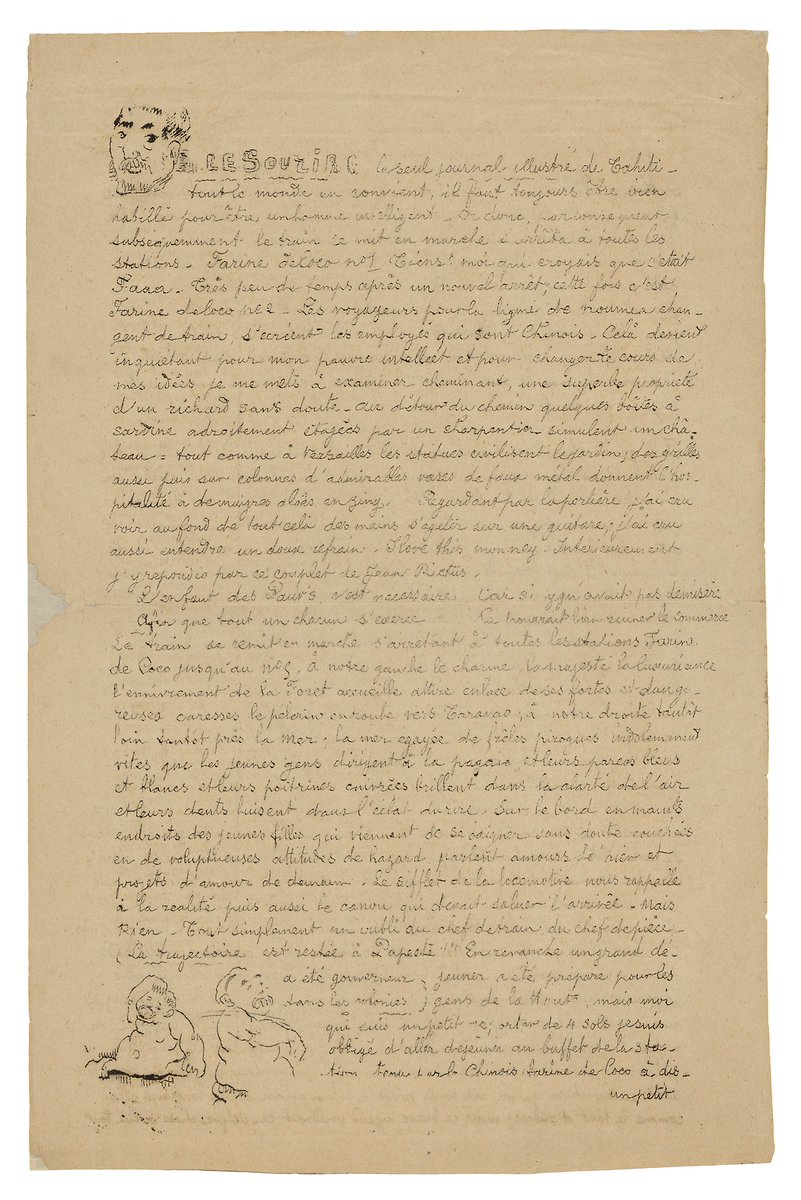 LE SOURIRE le seul journal illustré de Tahiti -
tout le monde en convient, il faut toujours être bien
habillé pour être un homme intelligent - Or donc, par conséquent
subséquemment le train se mit en marche s'arrêta à toutes les
stations - Farine de coco no 1 Tiens! moi qui croyais que c'était
Faaa - Très peu de temps après un nouvel arrêt; cette fois c'est
Farine de coco no 2 - Les voyageurs pour la ligne de noumea chan-
gent de train, s'écrient les employés qui sont Chinois - Celà devient
inquiétant pour mon pauvre intellect et pour changer le cours de
mes idées je me mets à examiner cheminant, une superbe propriété
d'un richard sans doute - au détour du chemin quelques boîtes à
sardine adroitement étagées par un charpentier simulent un châ-
teau = tout comme à Versailles les statues civilisent le jardin; des grilles
aussi puis sur colonnes d'admirables vases de faux métal donnent l'hos-
pitalité à de maigres aloès en zing. Regardant par la portière j'ai cru
voir au fond de tout celà des mains s'agiter sur une guitare; j'ai cru
aussi entendre un doux refrain - I love this monney. Interieurement
j'y repondis par ce complet de Jean Rictus.
L'en faut des Pauv's, c'est necessaire Car si ygn'avait pas d'misère
Afin que tout un chacun s'exerce Ça pourrait bien ruiner le commerce
Le train se remit en marche s'arretant à toutes les stations Farin.
de Coco jusqu'au no 5, à notre gauche le charme, la majesté la luxuriance
l'ennivrement de la Foret accueille attire enlace de ses fortes et dange-
reuses caresses le pelerin en route vers Taravao; à notre droite tantôt
loin tantôt près la Mer; la mer egayée de frêles pirogues indolemment
vites que les jeunes gens dirigent à la pagaie, et leurs pareos bleus
et blancs et leurs poitrines cuivrées brillent dans la clarté de l'air
et leurs dents luisent dans l'éclat du rire. Sur le bord en maints
endroits des jeunes filles qui viennent de se baigner sans doute couchées
en de voluptueuses attitudes de hazard parlent amours d'hier et
projets d'amour de demain. Le sifflet de la locomotive nous rappelle
à la realité puis aussi le canon qui devait saluer l'arrivée - Mais
Rien - Tout simplement un oubli du chef de train, du chef de pièce -
(La trajectoire est restée à Papeete !!! En revanche un grand dé-
a été gouverneur; jeuner a été préparé pour les
dans les colonies; gens de la Haut, mais moi
qui suis un petit reporter de 4 sols je suis
obligé d'aller dejeuner au buffet de la sta-
tion tenu par le Chinois farine de Coco à dis-
un petit